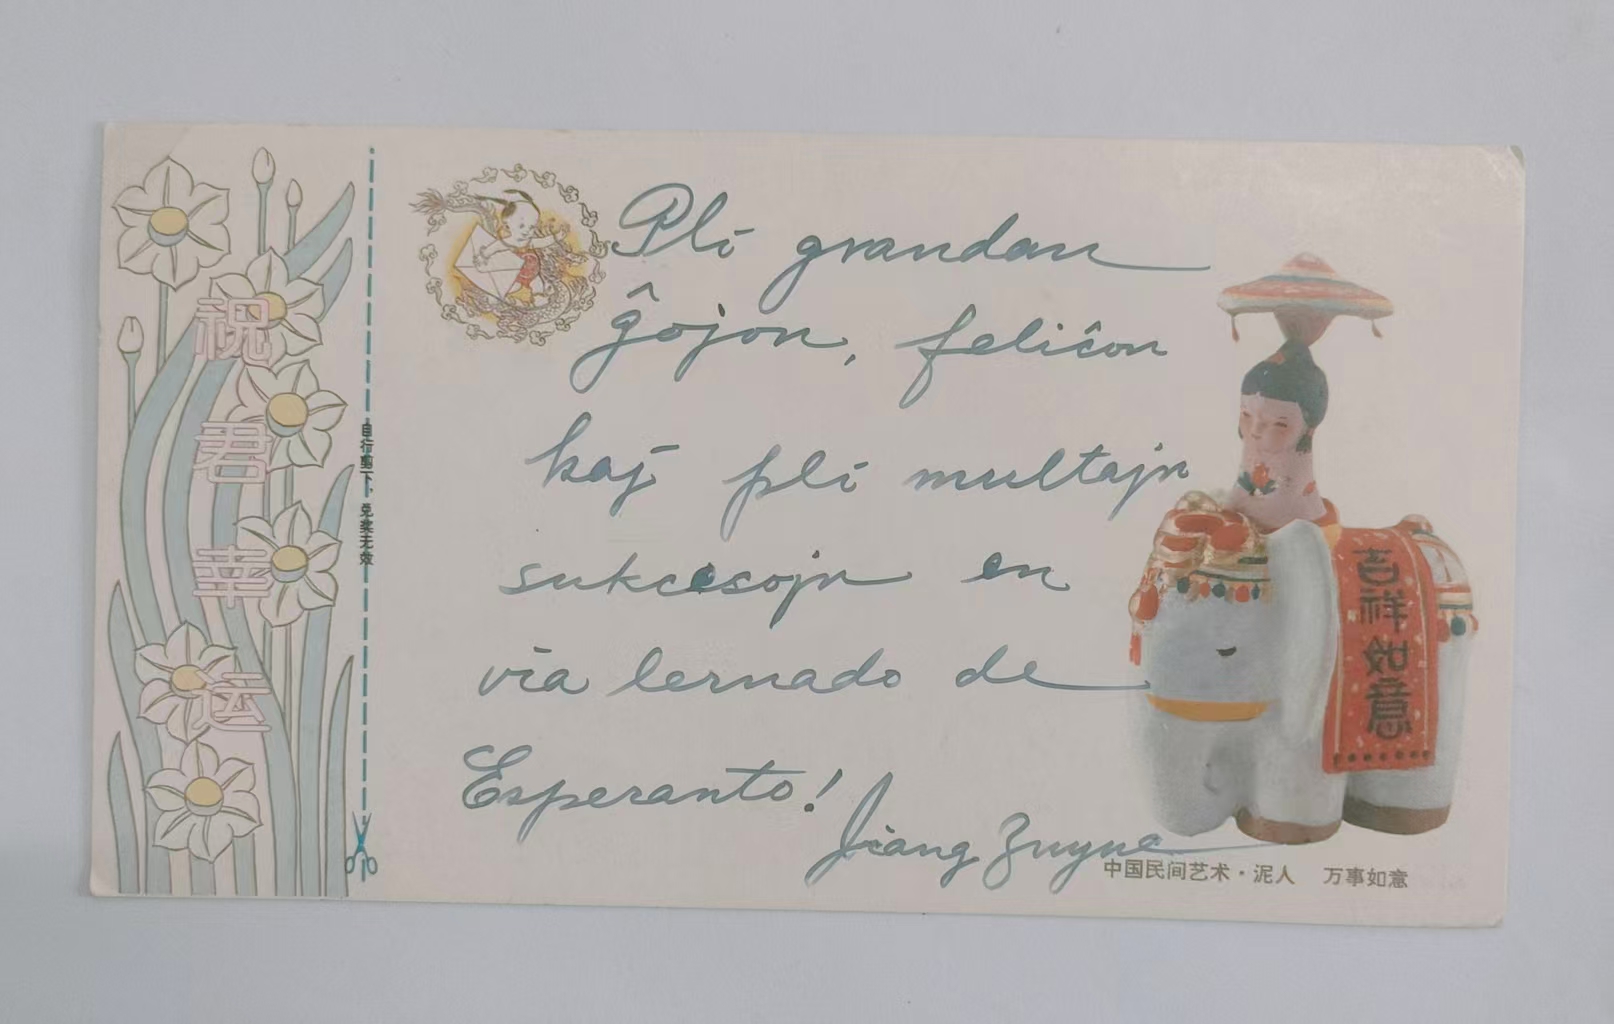 祝君幸运
自行剪下,兑奖无效
Pli grandan
ĝojon, feliĉon
kaj pli multajn
sukcesojn en
via lernado de
Esperanto!
Jiang Zuyue
吉祥如意
中国民间艺术·泥人 万事如意